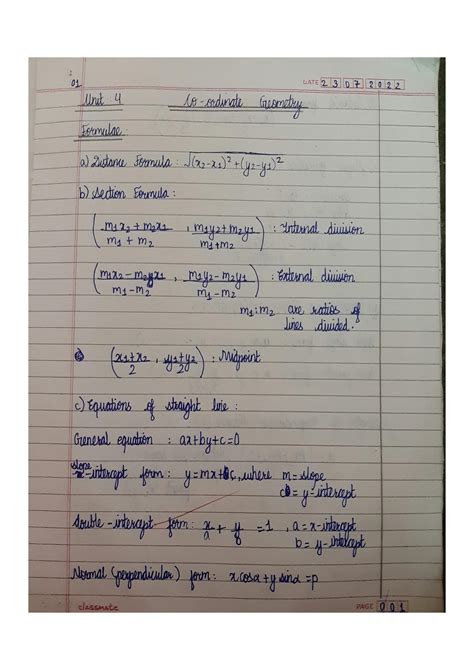 01
DATE 23 07 2022
Unit 4 Co-ordinate Geometry
Formulae:
a) Distance Formula: √(x₂-x₁)²+(y₂-y₁)²
b) Section Formula:
(m₁x₂ + m₂x₁ / m₁ + m₂ , m₁y₂ + m₂y₁ / m₁+m₂) : Internal division
(m₁x₂ - m₂x₁ / m₁ - m₂ , m₁y₂ - m₂y₁ / m₁ - m₂) : External division
m₁:m₂ are ratios of
lines divided.
(x₁+x₂ / 2 , y₁+y₂ / 2) : Midpoint
c) Equations of straight line :
General equation : ax+by+c=0
slope-intercept form: y=mx+c, where m=slope
c=y-intercept
Double-intercept form: x/a + y/b =1 , a=x-intercept
b=y-intercept
Normal (perpendicular) form: x cosα+y sinα=p
classmate
PAGE 001